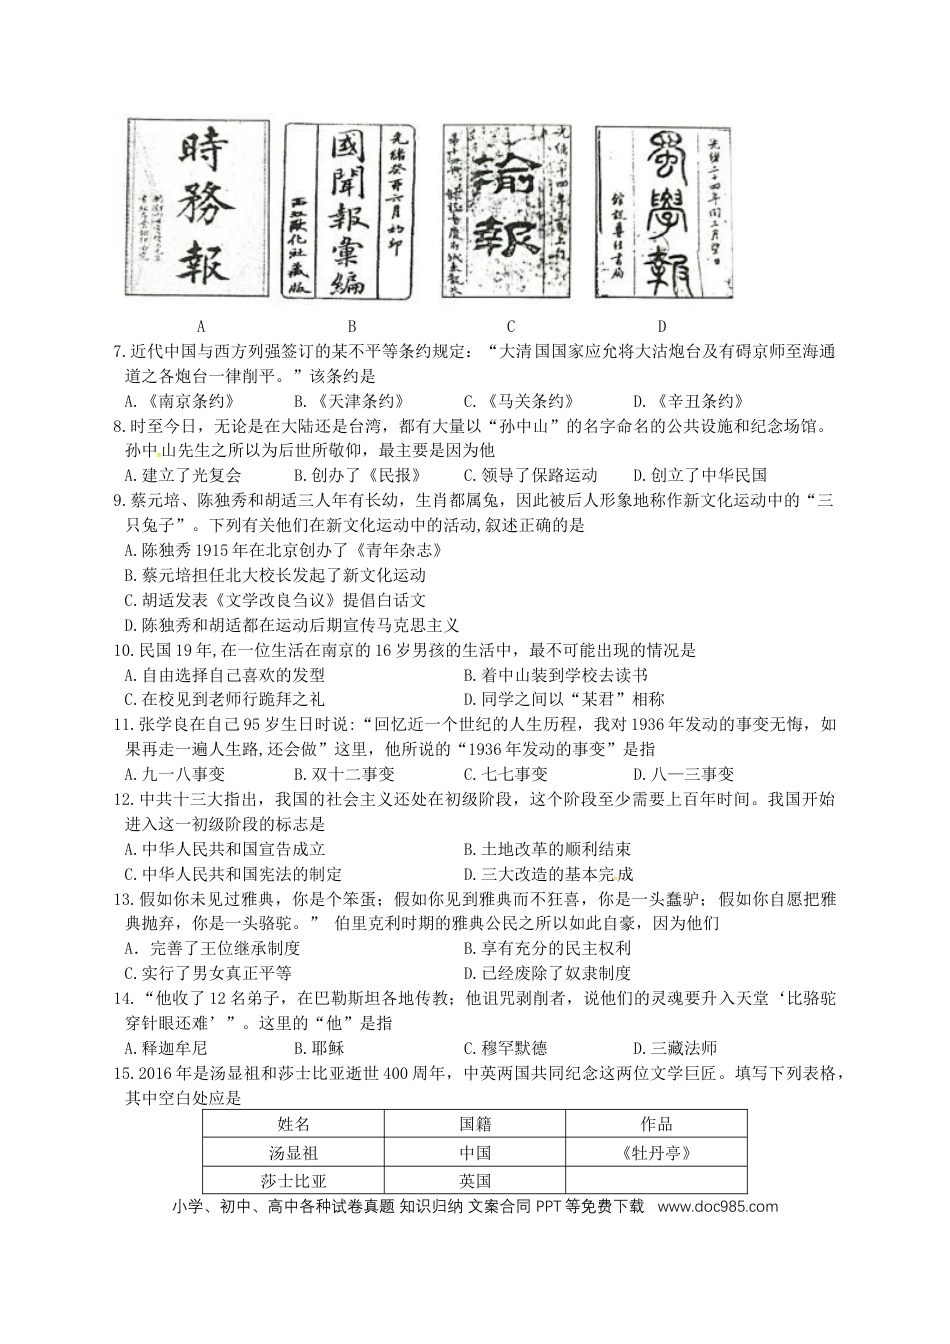 時務報
國聞報彙編
光緒癸卯六月初印
西江歐化社藏版
渝報
蜀學報
A B C D
7.近代中国与西方列强签订的某不平等条约规定：“大清国国家应允将大沽炮台及有碍京师至海通
道之各炮台一律削平。”该条约是
A.《南京条约》 B.《天津条约》 C.《马关条约》 D.《辛丑条约》
8.时至今日，无论是在大陆还是台湾，都有大量以“孙中山”的名字命名的公共设施和纪念场馆。
孙中山先生之所以为后世所敬仰，最主要是因为他
A.建立了光复会 B.创办了《民报》 C.领导了保路运动 D.创立了中华民国
9.蔡元培、陈独秀和胡适三人年有长幼，生肖都属兔，因此被后人形象地称作新文化运动中的“三
只兔子”。下列有关他们在新文化运动中的活动,叙述正确的是
A.陈独秀1915年在北京创办了《青年杂志》
B.蔡元培担任北大校长发起了新文化运动
C.胡适发表《文学改良刍议》提倡白话文
D.陈独秀和胡适都在运动后期宣传马克思主义
10.民国19年,在一位生活在南京的16岁男孩的生活中，最不可能出现的情况是
A.自由选择自己喜欢的发型 B.着中山装到学校去读书
C.在校见到老师行跪拜之礼 D.同学之间以“某君”相称
11.张学良在自己95岁生日时说:“回忆近一个世纪的人生历程，我对1936年发动的事变无悔，如
果再走一遍人生路,还会做”这里，他所说的“1936年发动的事变”是指
A.九一八事变 B.双十二事变 C.七七事变 D.八一三事变
12.中共十三大指出，我国的社会主义还处在初级阶段，这个阶段至少需要上百年时间。我国开始
进入这一初级阶段的标志是
A.中华人民共和国宣告成立 B.土地改革的顺利结束
C.中华人民共和国宪法的制定 D.三大改造的基本完成
13.假如你未见过雅典，你是个笨蛋；假如你见到雅典而不狂喜，你是一头蠢驴；假如你自愿把雅
典抛弃，你是一头骆驼。” 伯里克利时期的雅典公民之所以如此自豪，因为他们
A．完善了王位继承制度 B.享有充分的民主权利
C.实行了男女真正平等 D.已经废除了奴隶制度
14.“他收了12名弟子，在巴勒斯坦各地传教；他诅咒剥削者，说他们的灵魂要升入天堂‘比骆驼
穿针眼还难’”。这里的“他”是指
A.释迦牟尼 B.耶稣 C.穆罕默德 D.三藏法师
15.2016年是汤显祖和莎士比亚逝世400周年，中英两国共同纪念这两位文学巨匠。填写下列表格，
其中空白处应是
姓名 国籍 作品
汤显祖 中国 《牡丹亭》
莎士比亚 英国
小学、初中、高中各种试卷真题 知识归纳 文案合同 PPT等免费下载 www.doc985.com